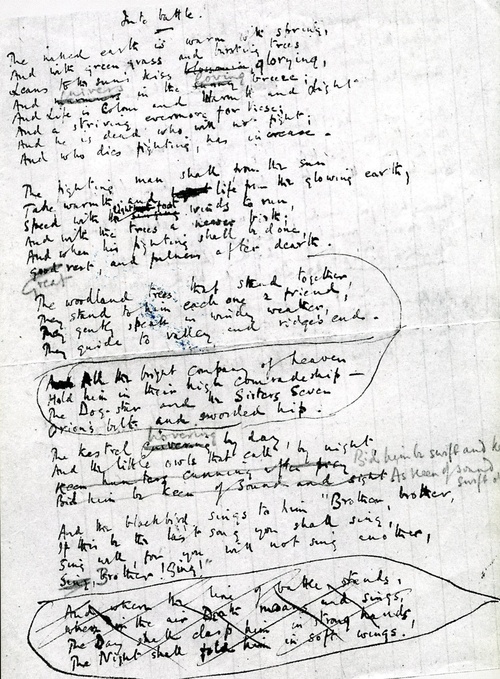 Into battle.
The naked earth is warm with spring,
And with green grass and bursting trees
Leans to the sun's kiss glorying,
And quivers in the loving sunny breeze;
And Life is Colour and Warmth and Light
And a striving evermore for these;
And he is dead who will not fight;
And who dies fighting has increase.
The fighting man shall from the sun
Take warmth, and life from the glowing earth;
Speed with the light-foot winds to run,
And with the trees a newer birth;
And when his fighting shall be done,
good rest, and fulness after dearth.
Great
The woodland trees that stand together,
They stand to him each one a friend;
They gently speak in windy weather,
They guide to valley and ridges end.
All the bright company of heaven
Hold him in their high comradeship –
The Dog-star and the Sisters Seven
Orion's belt and sworded hip.
hovering
The kestrel quivering by day,
And the little owls that call by night
Keen hunters cunning after prey
Bid him be swift and
Bid him be keen of sound and sight
As keen of sound
swift of
And the blackbird sings to him "Brother, brother,
If this be the last song you shall sing,
Sing well, for you will not sing another,
Sing, Brother! Sing!"
And when the line of battle stands,
when in the air Death moans and sings,
The Day shall clasp him in strong hands,
The Night shall fold him in soft wings.